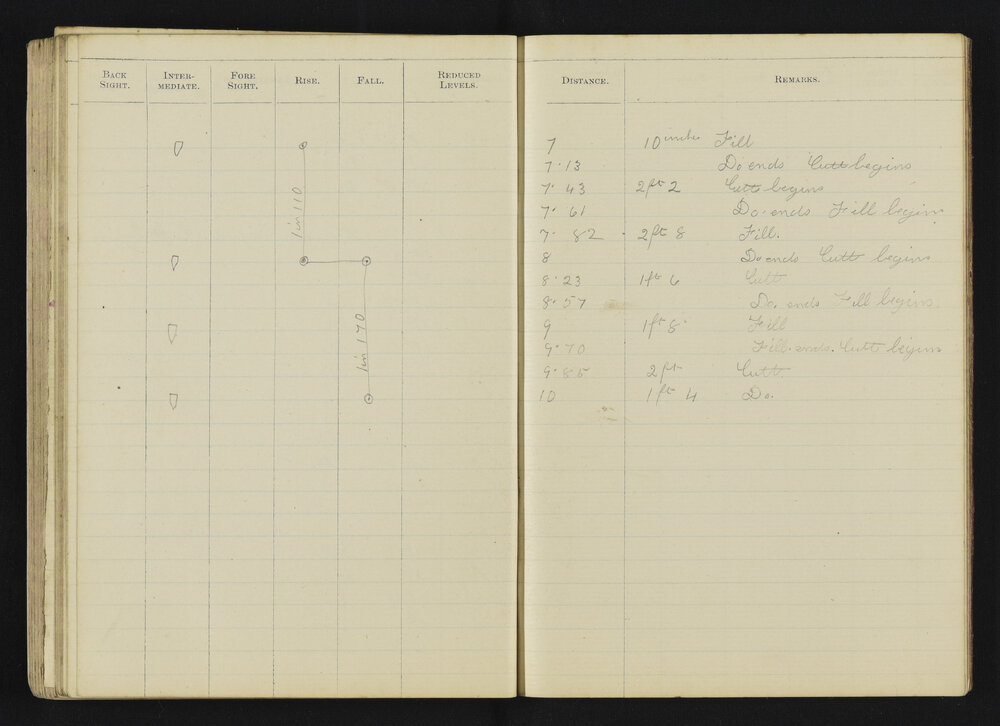 BACK SIGHT. INTER-MEDIATE. FORE SIGHT. RISE. FALL. REDUCED LEVELS.
1 in 110
1 in 170
DISTANCE. REMARKS.
7 10 inches Fill
7·13 Do ends Cutt begins
7·43 2ft 2 Cutt begins
7·61 Do. ends Fill begins
7·82 2ft 8 Fill.
8 Do ends Cutt begins
8·23 1ft 6 Cutt
8·57 Do. ends Fill begins
9 1ft 8 Fill
9·70 Fill ends. Cutt begins
9·85 2ft Cutt
10 1ft 4 Do.